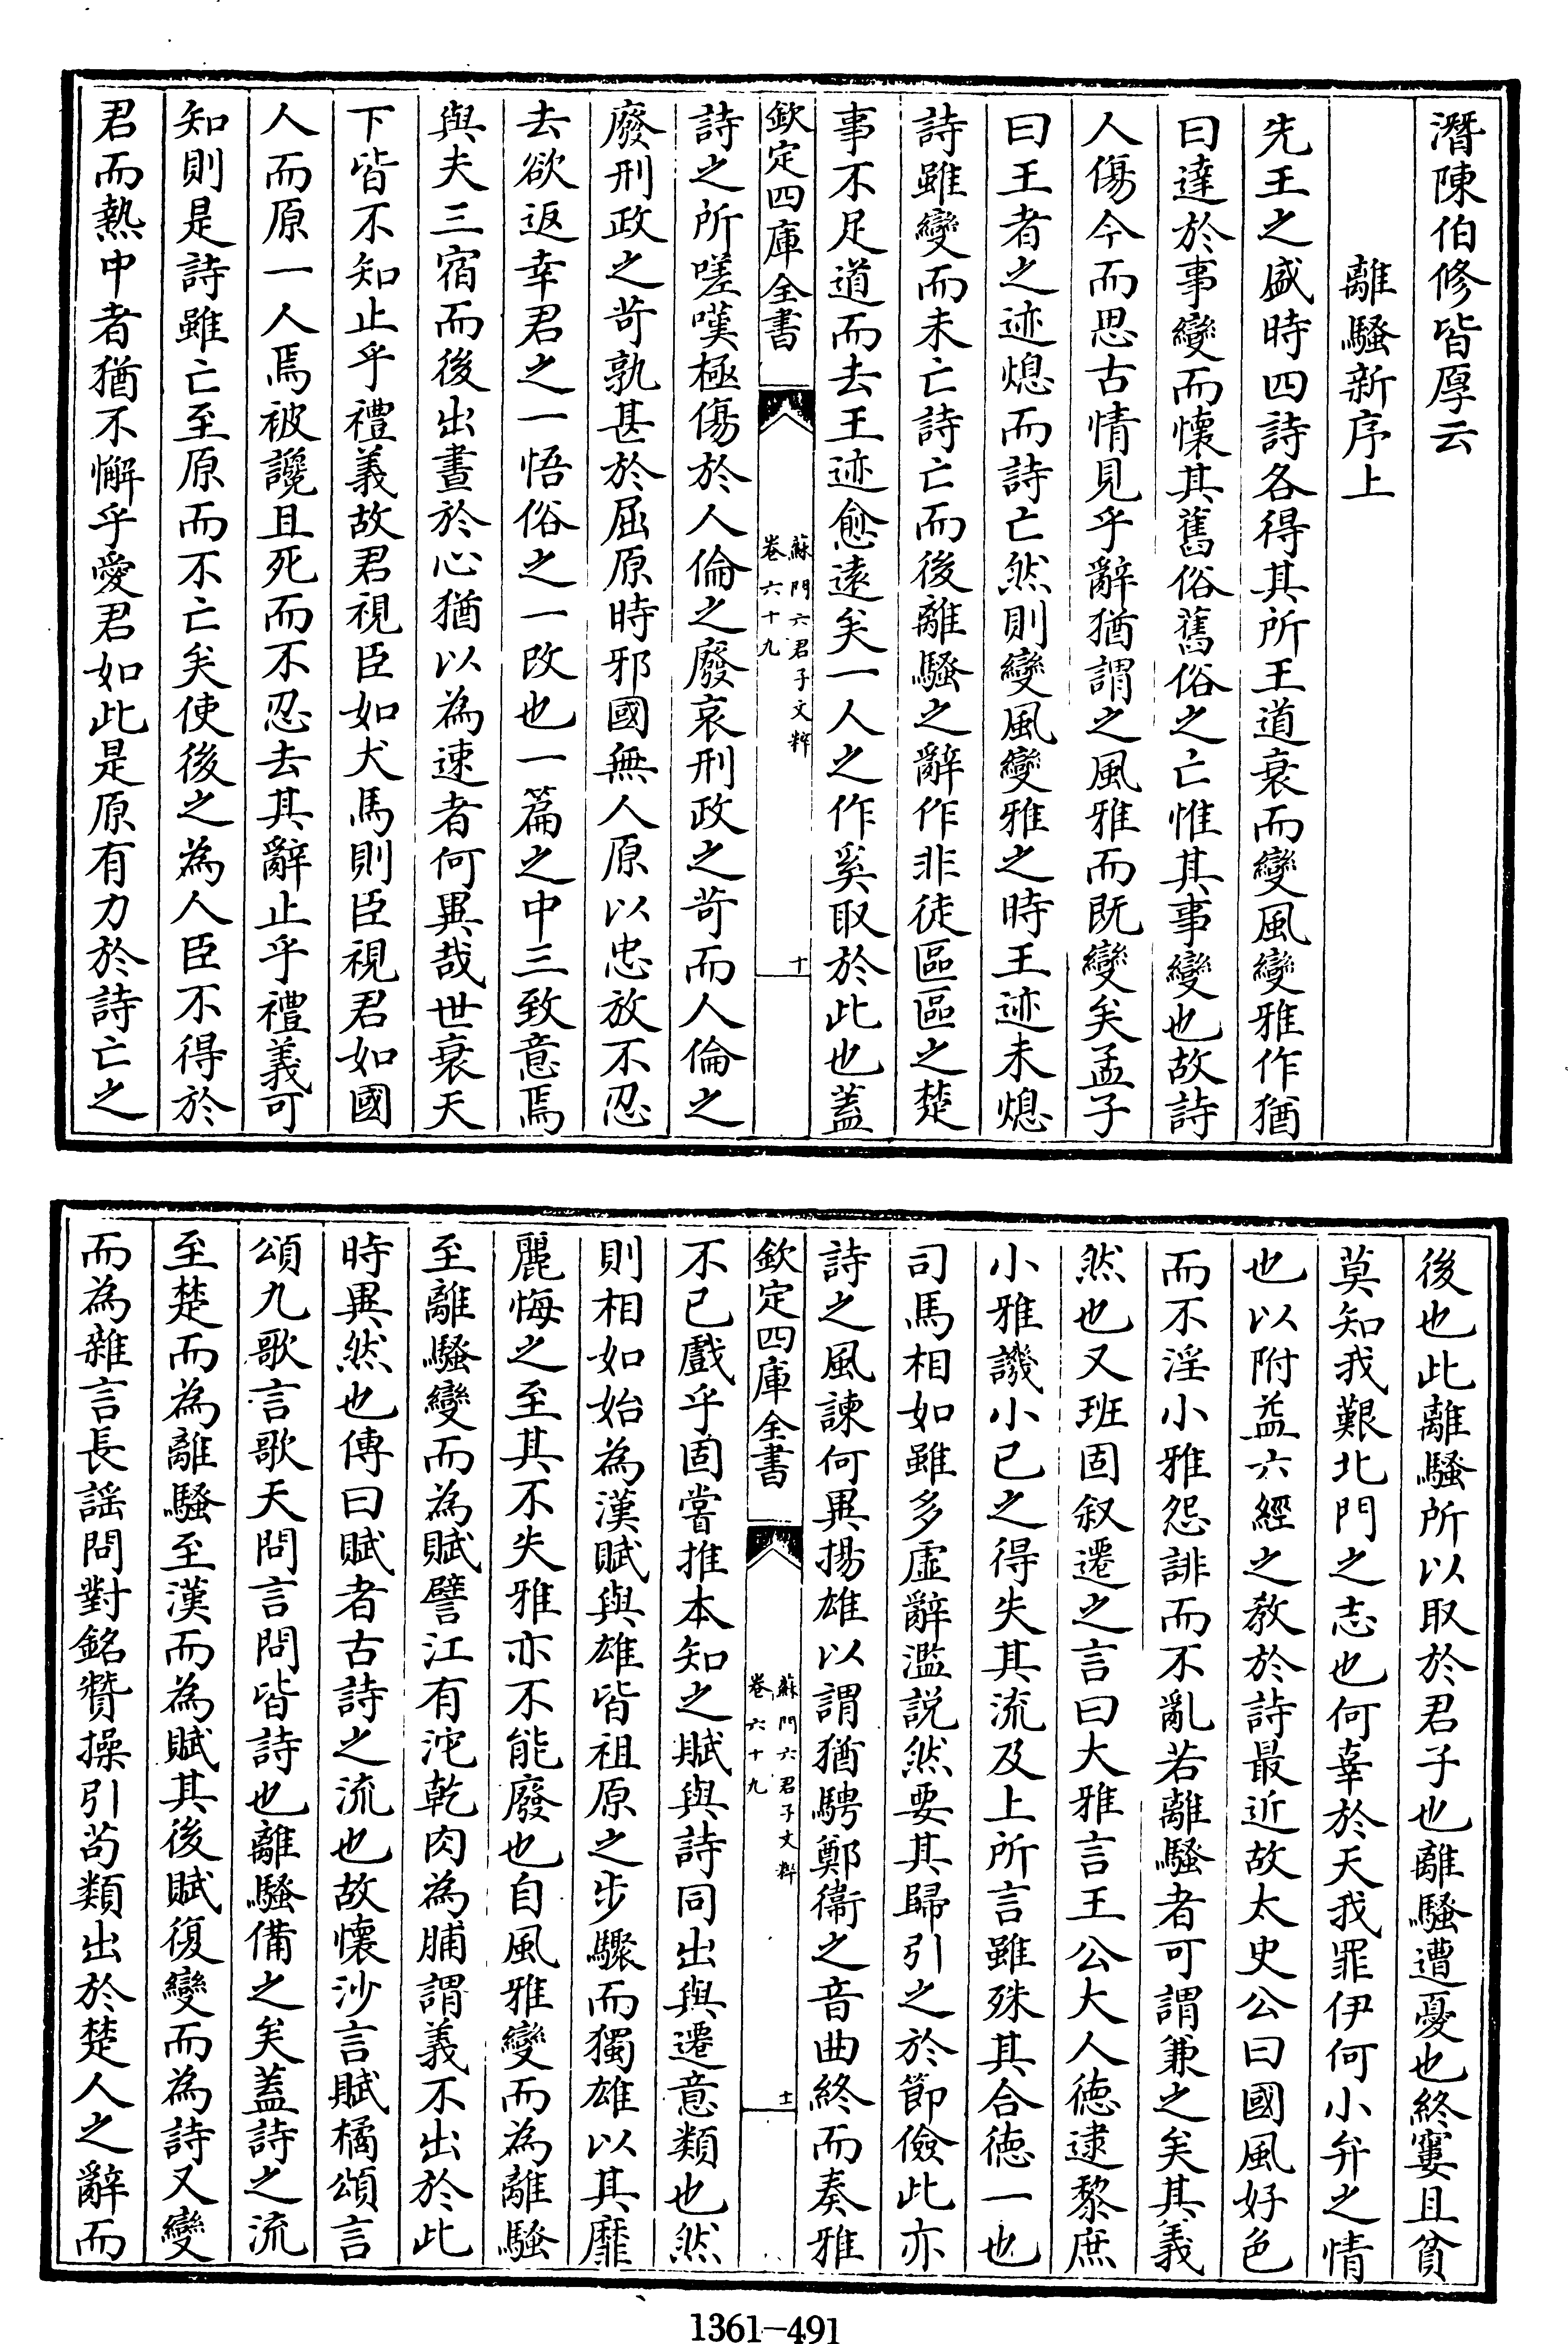 潛陳伯修皆厚云
離騷新序上
先王之盛時四詩各得其所王道衰而變風變雅作猶
曰達於事變而懷其舊俗舊俗之亡惟其事變也故詩
人傷今而思古情見乎辭猶謂之風雅而既變矣孟子
曰王者之迹熄而詩亡然則變風變雅之時王迹未熄
詩雖變而未亡詩亡而後離騷之辭作非徒區區之楚
事不足道而去王迹愈遠矣一人之作奚取於此也蓋
欽定四庫全書
蘇門六君子文粹
卷六十九
十
詩之所嗟嘆極傷於人倫之廢哀刑政之苛而人倫之
廢刑政之苛孰甚於屈原時邪國無人原以忠放不忍
去欲返幸君之一悟俗之一改也一篇之中三致意焉
與夫三宿而後出晝於心猶以為速者何異哉世衰天
下皆不知止乎禮義故君視臣如犬馬則臣視君如國
人而原一人焉被讒且死而不忍去其辭止乎禮義可
知則是詩雖亡至原而不亡矣使後之為人臣不得於
君而熱中者猶不懈乎愛君如此是原有力於詩亡之
後也此離騷所以取於君子也離騷遭憂也終窶且貧
莫知我艱北門之志也何辜於天我罪伊何小弁之情
也以附益六經之教於詩最近故太史公曰國風好色
而不淫小雅怨誹而不亂若離騷者可謂兼之矣其義
然也又班固叙遷之言曰大雅言王公大人德逮黎庶
小雅譏小己之得失其流及上所言雖殊其合德一也
司馬相如雖多虛辭濫説然要其歸引之於節儉此亦
詩之風諫何異揚雄以謂猶騁鄭衛之音曲終而奏雅
欽定四庫全書
蘇門六君子文粹
卷六十九
十一
不已戲乎固嘗推本知之賦與詩同出與遷意類也然
則相如始為漢賦與雄皆祖原之步驟而獨雄以其靡
麗悔之至其不失雅亦不能廢也自風雅變而為離騷
至離騷變而為賦譬江有沱乾肉為脯謂義不出於此
時異然也傳曰賦者古詩之流也故懷沙言賦橘頌言
頌九歌言歌天問言問皆詩也離騷備之矣蓋詩之流
至楚而為離騷至漢而為賦其後賦復變而為詩又變
而為雜言長謡問對銘贊操引苟類出於楚人之辭而
1361-491